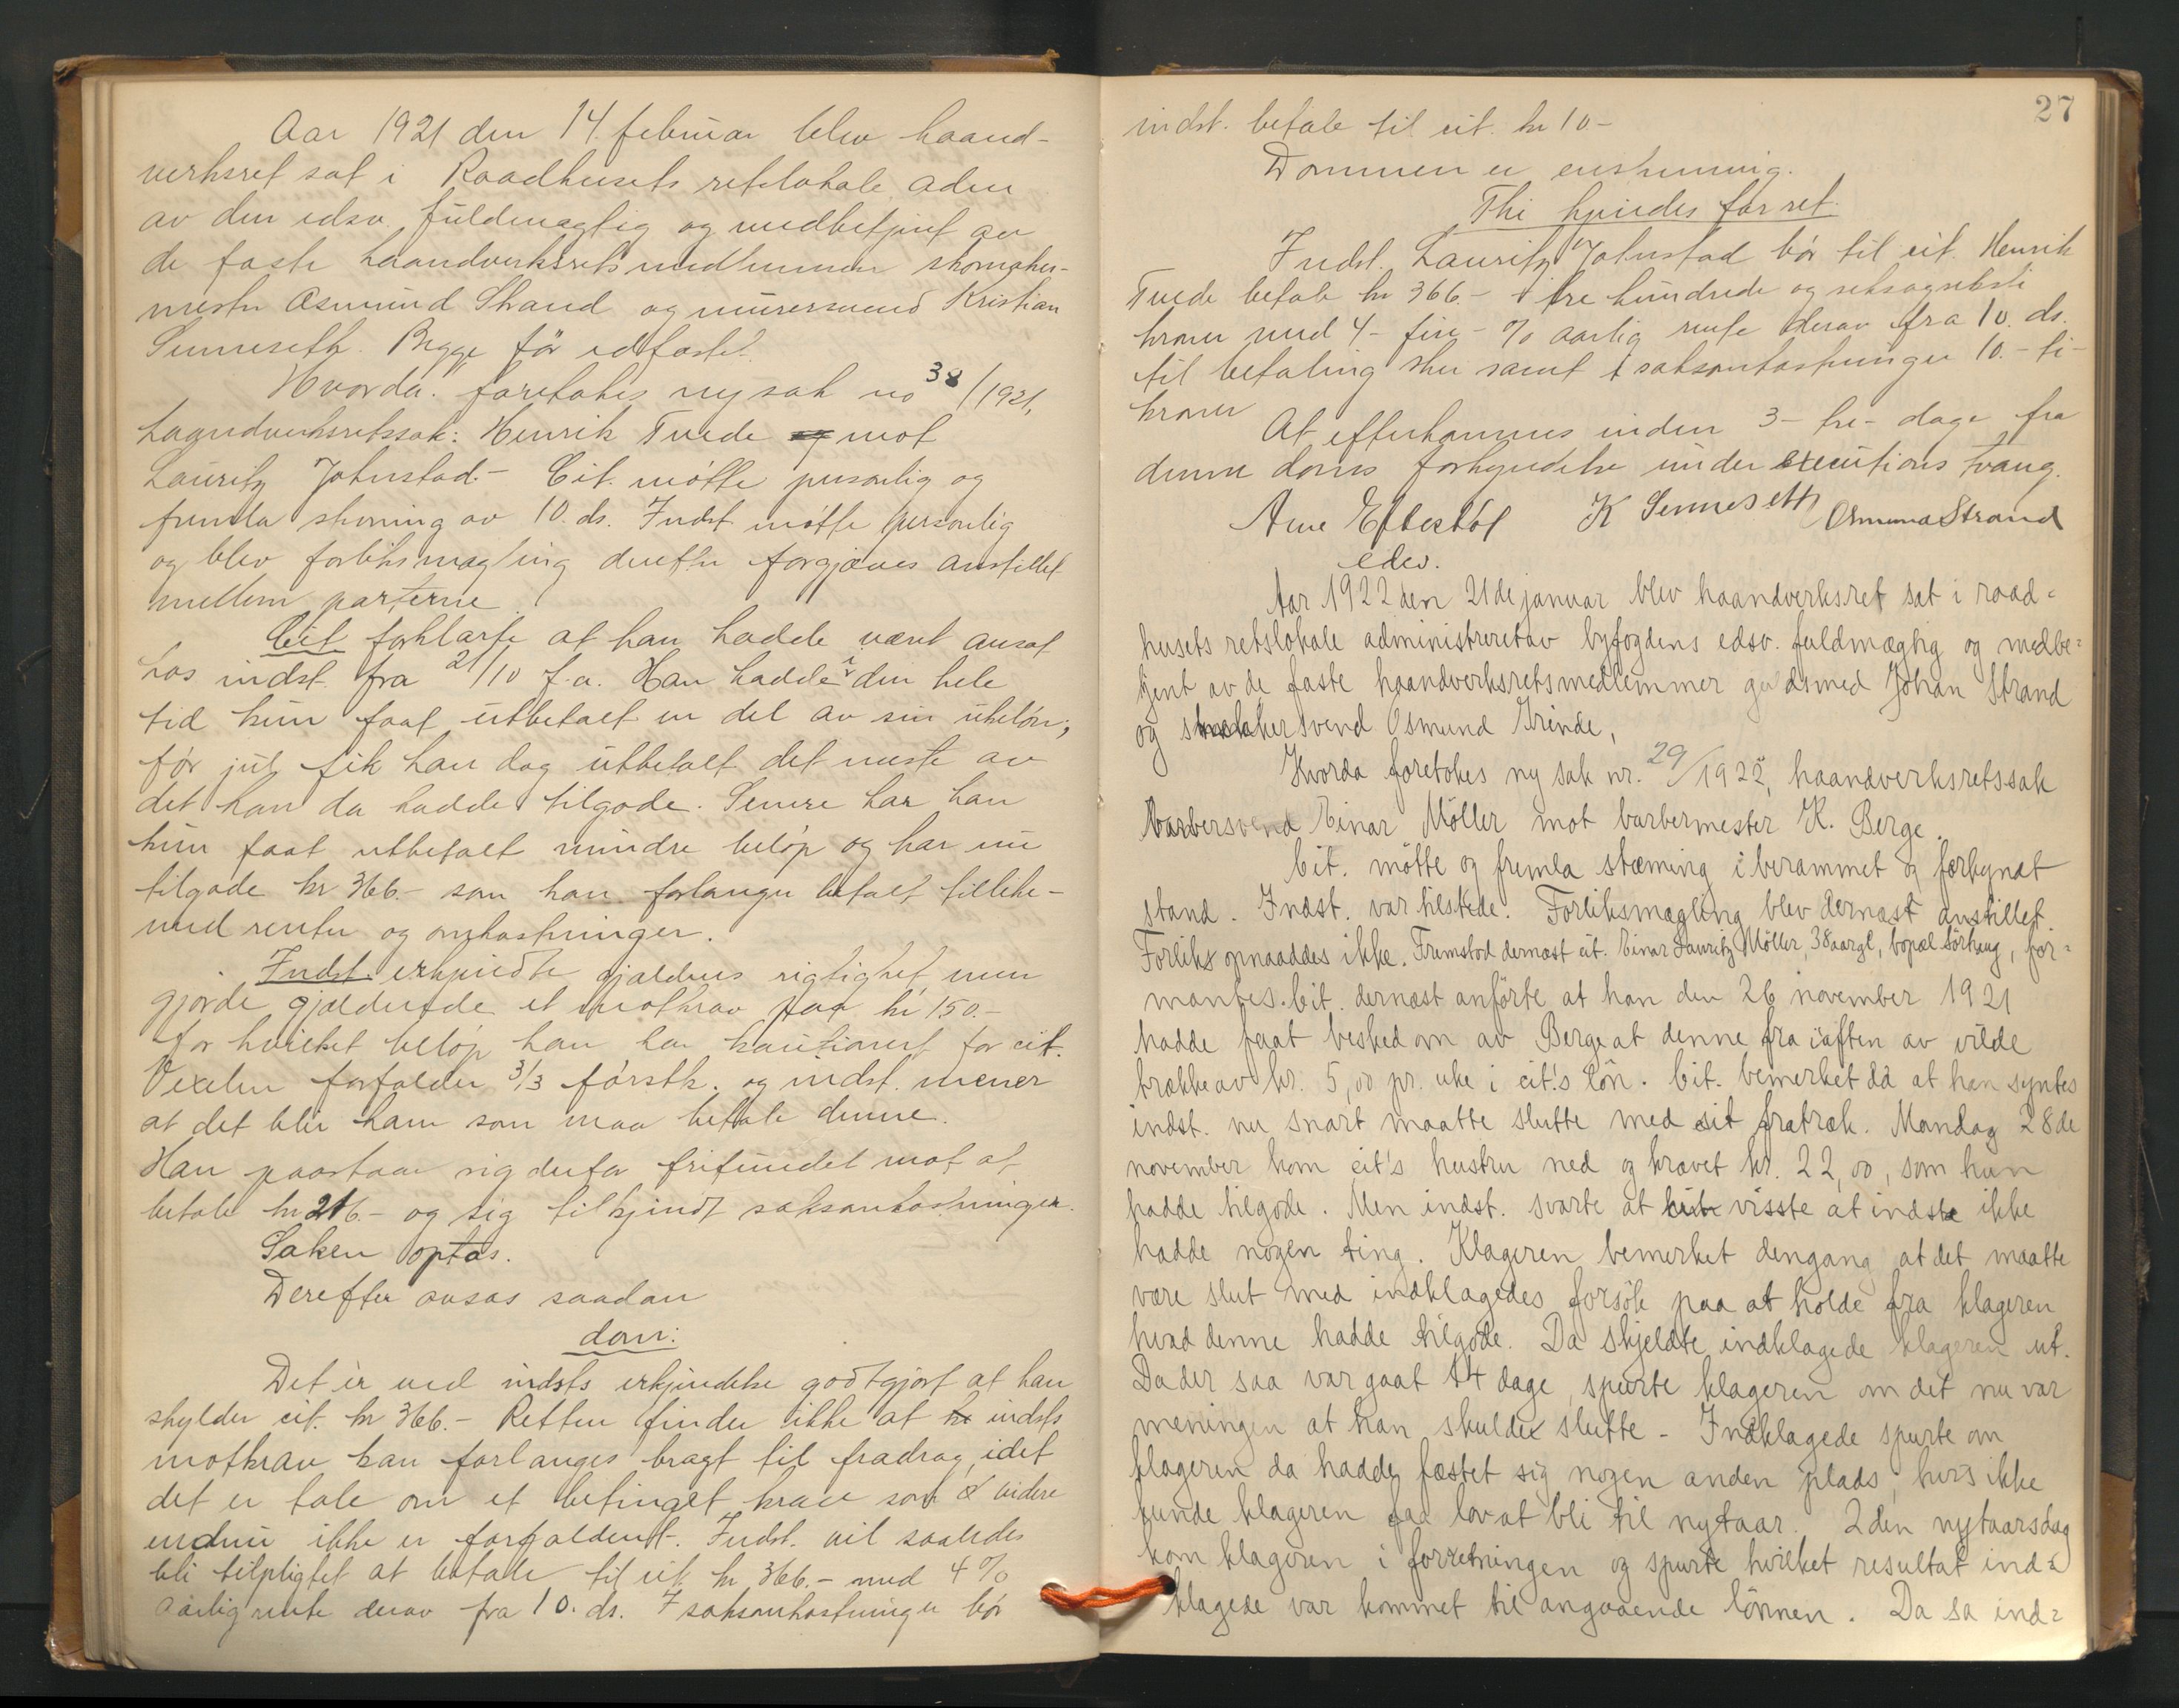 Aar 1921 den 14. februar blev haand-
verksret sat i Raadhusets retslokale adm
av den edsv. fuldmægtig og medbetjent av
de faste haandverksretsmedlemmer skomaker-
mester Osmund Strand og murersvend Kristian
Senneseth. Begge før edfæstet.
Hvorda: foretokes ny sak no 38/1921,
haandverksretssak: Henrik Tvede og mot
Lauritz Johnstad. - Cit. møtte personlig og
fremla stevning av 10. ds. Indst møtte personlig
og blev forliksmægling derefter forgjæves anstillet
mellem parterne
Cit forklarte at han hadde været ansat
hos indst. fra 21/10 f.a. Han hadde i den hele
tid kun faat utbetalt en del av sin ukeløn;
før jul fik han dog utbetalt det meste av
det han da hadde tilgode. Senere har han
kun faat utbetalt mindre beløp og har nu
tilgode kr 366.- som han forlanger betalt tillike-
med renter og omkostninger.
Indst. erkjendte gjældens rigtighet, men
gjorde gjældende et motkrav paa kr 150.-
for hvilket beløp han har kautionert for cit.
Vexelen forfalder 3/3 førstk. og indst. mener
at det blir ham som maa betale denne.
Han paastaar sig derfor frifundet mot at
betale kr 216.- og sig tilkjendt saksomkostninger.
Saken optas.
Derefter avsas saadan
dom:
Det er ved indsts erkjendelse godtgjort at han
skylder cit. kr 366.- Retten finder ikke at indsts
motkrav kan forlanges bragt til fradrag, idet
det er tale om et betinget krav som videre
endnu ikke er forfaldent. Indst. vil saaledes
bli tilpligtet at betale til cit. kr 366.- med 4 %
aarlig rente derav fra 10. ds. I saksomkostninger bør
27
indst. betale til cit. kr 10-
Dommen er enstemmig.
Thi kjendes for ret:
Indst. Lauritz Johnstad bør til cit. Henrik
Tvede betale kr 366.- tre hundrede og seksogseksti
kroner med 4- fire- % aarlig rente derav fra 10. ds.
til betaling sker samt i saksomkostninger 10.- ti-
kroner
At efterkommes inden 3- tre- dage fra
denne doms forkyndelse under executions tvang.
Arne Eftestøl K Sennesett Osmund Strand
edsv.
Aar 1922 den 21de januar blev haandverksret sat i raad=
husets retslokale administreret av byfogdens edsv. fuldmægtig og medbe=
tjent av de faste haandverksretsmedlemmer guldsmed Johan Strand
og snekkersvend Osmund Grinde,
Hvorda foretokes ny sak nr. 29/1922, haandverksretssak
Barbersvend Einar Møller mot barbermester K. Berge.
Cit. møtte og fremla stævning i berammet og forkyndt
stand. Indst. var tilstede. Forliksmægling blev dernæst anstillet.
Forlik opnaaddes ikke. Fremstod dernæst cit. Einar Lauritz Møller, 38 aar gl, bopæl Sørhaug, for=
mantes. Cit. dernæst anførte at han den 26 november 1921
hadde faat besked om av Berge at denne fra iaften av vilde
trække av kr. 5,00 pr. uke i cit's løn. Cit. bemerket da at han syntes
indst. nu snart maatte slutte med sit fratræk. Mandag 28de
november kom cit's hustru ned og krævet kr. 22,00, som hun
hadde tilgode. Men indst. svarte at visste at indst ikke
hadde nogen ting. Klageren bemerket dengang at det maatte
være slut med indklagedes forsøk paa at holde fra klageren
hvad denne hadde tilgode. Da skjeldte indklagede klageren ut.
Da der saa var gaat 14 dage, spurte klageren om det nu var
meningen at han skulde slutte - Indklagede spurte om
klageren da hadde fæstet sig nogen anden plads, hvis ikke
kunde klageren faa lov at bli til nytaar. 2den nytaarsdag
kom klageren i forretningen og spurte hvilket resultat ind=
klagede var kommet til angaaende lønnen. Da sa ind=